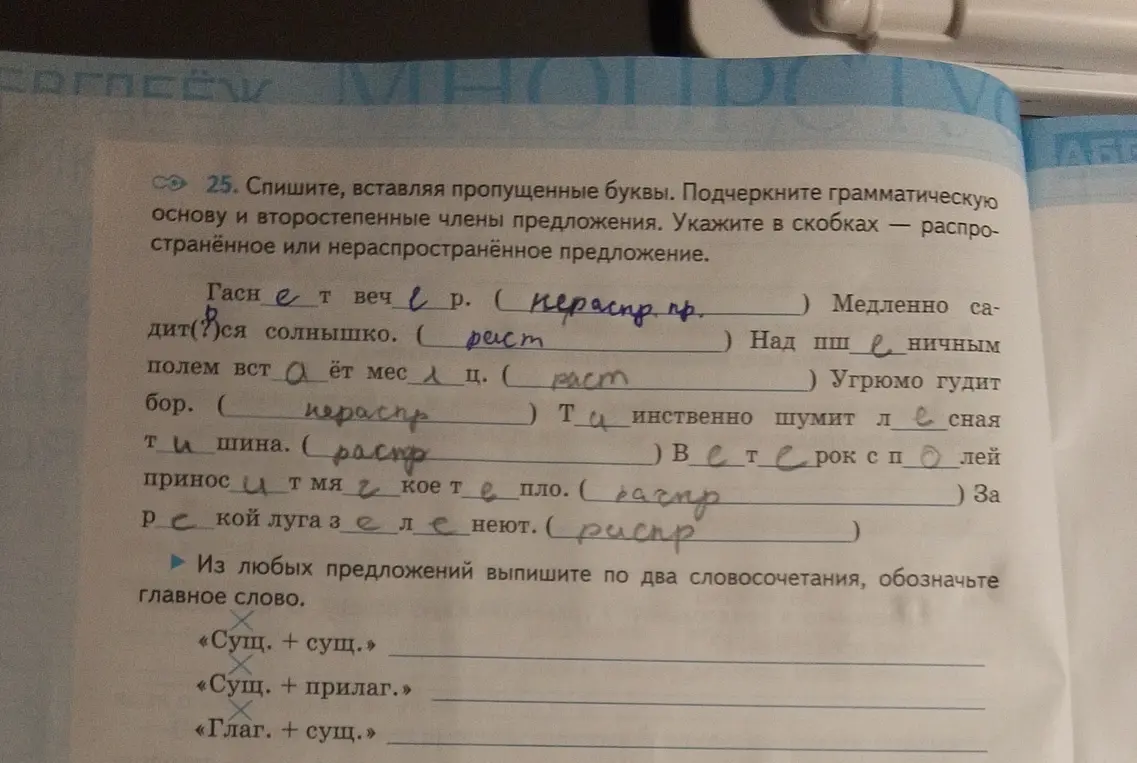 МНОПРСТУ
АБВ
25. Спишите, вставляя пропущенные буквы. Подчеркните грамматическую
основу и второстепенные члены предложения. Укажите в скобках — распро-
странённое или нераспространённое предложение.
Гасн е т веч е р. ( нераспр. пр. ) Медленно са-
дит(?)ся солнышко. ( раст ) Над пш е ничным
полем вст а ёт мес я ц. ( раст ) Угрюмо гудит
бор. ( нераспр ) Т и инственно шумит л е сная
т и шина. ( распр ) В е т е рок с п о лей
принос и т мя г кое т е пло. ( распр ) За
р е кой луга з е л е неют. ( распр )
Из любых предложений выпишите по два словосочетания, обозначьте
главное слово.
«Сущ. + сущ.»
«Сущ. + прилаг.»
«Глаг. + сущ.»